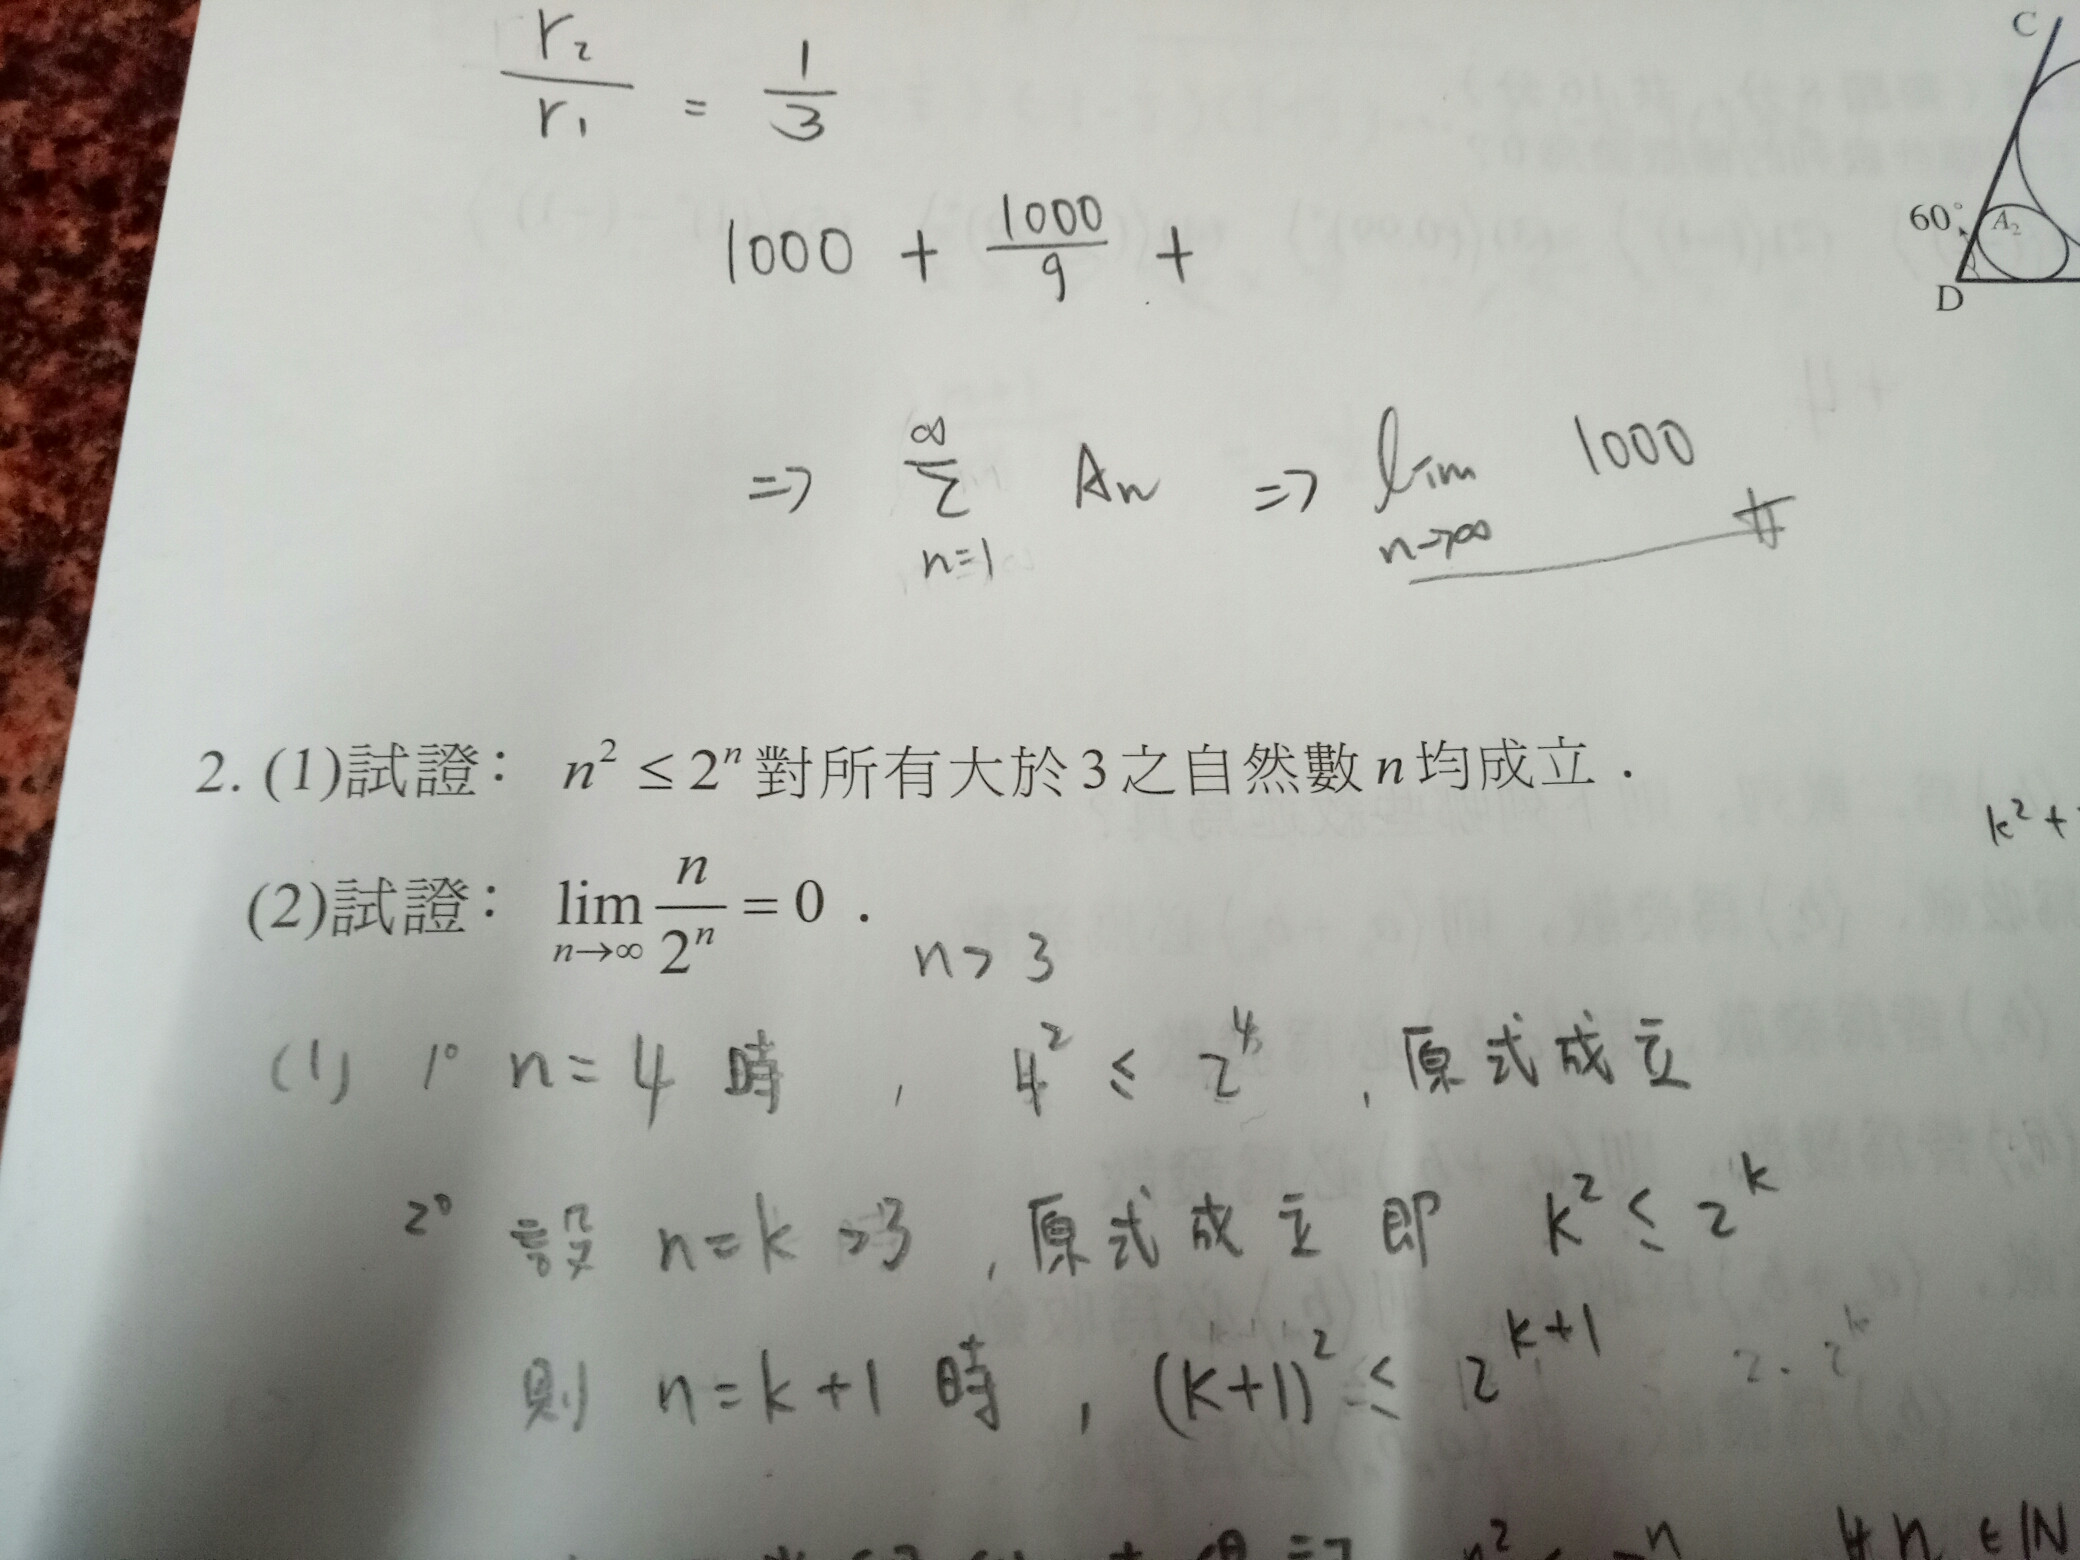 r₂/r₁ = 1/3
C
60°
A₂
D
1000 + 1000/9 +
⇒ ∑_{n=1}^{∞} An ⇒ lim_{n→∞} 1000 #
2. (1)試證： n² ≤ 2ⁿ 對所有大於3之自然數n均成立．
k²+
(2)試證： lim_{n→∞} n/2ⁿ = 0．
n>3
(1) 1° n=4 時 , 4² ≤ 2⁴ , 原式成立
2° 設 n=k >3 , 原式成立 即 k² ≤ 2^k
則 n=k+1 時 , (k+1)² ≤ 2^{k+1} 2·2^k
∀n∈ℕ